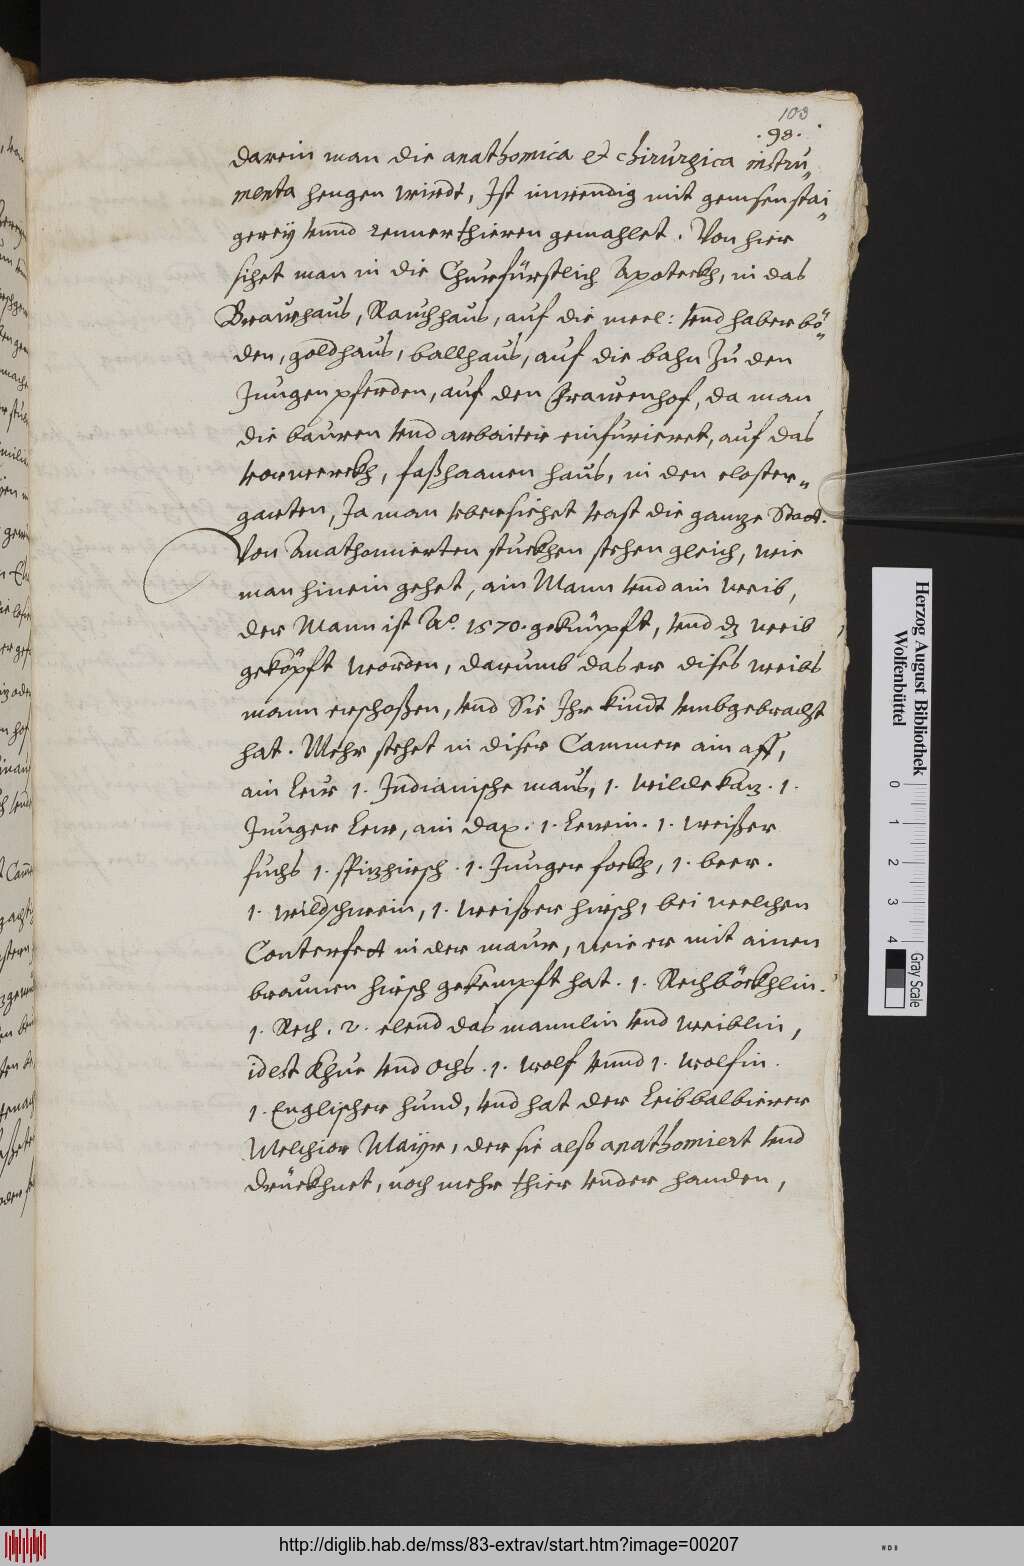 103
.98.
darein man die anathomica et chirurgica instru„
menta hengen wirdt, Ist inwendig mit gemsenstai„
gereÿ vnnd rennerthieren gemahlet. Von hier
sihet man in die Churfürstlich Apoteckh, in das
Breuhaus, Rauchhaus, auf die meel: vnd haberbö„
den, goldhaus, ballhaus, auf die bahn zu den
Jungen pferden, auf den Frauenhof, da man
die bauren vnd arbaiter einfurieret, auf das
vorwerckh, faßhaanen haus, in den closter„
garten, Ja man vbersiehet vast die ganze Stadt.
Von Anathomierten stuckhen stehen gleich, wie
man hinein gehet, ain Mann vnd ain weib,
der Mann ist Ao. 1570. geknüpft, vnd dz weib
geköpft worden, darumb das er dises weibs
mann erschoßen, vnd Sie Ihr kindt vmbgebracht
hat. Mehr stehet in diser Cammer ain aff,
ain Leur 1. Indianische maus, 1. wilde kaz. 1.
Junger Lew, ain dax. 1. Lewin. 1. weißer
fuchs 1. spizhirsch. 1. Junger fockh, 1. beer.
1. wildschwein, 1. weißer hirsch, bei welchen
Conterfect in der maur, wie er mit ainen
braunen hirsch gekempft hat. 1. Rechböckhlin.
1. Rech. 2. elend das mannlin vnd weiblin,
idest khue vnd ochs. 1. wolf vnnd 1. wolfin.
1. Englischer hund, vnd hat der Leibbalbierer
Melchior Maijr, der sie alß anathomiert vnd
drückhnet, noch mehr thier vnder handen,
Herzog August Bibliothek
Wolfenbüttel
0 1 2 3 4
Gray Scale
http://diglib.hab.de/mss/83-extrav/start.htm?image=00207